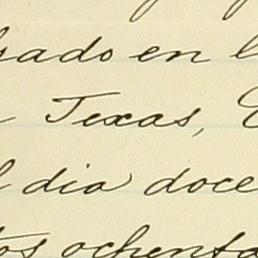 sado en l
Texas,
dia doce
tos ochenta